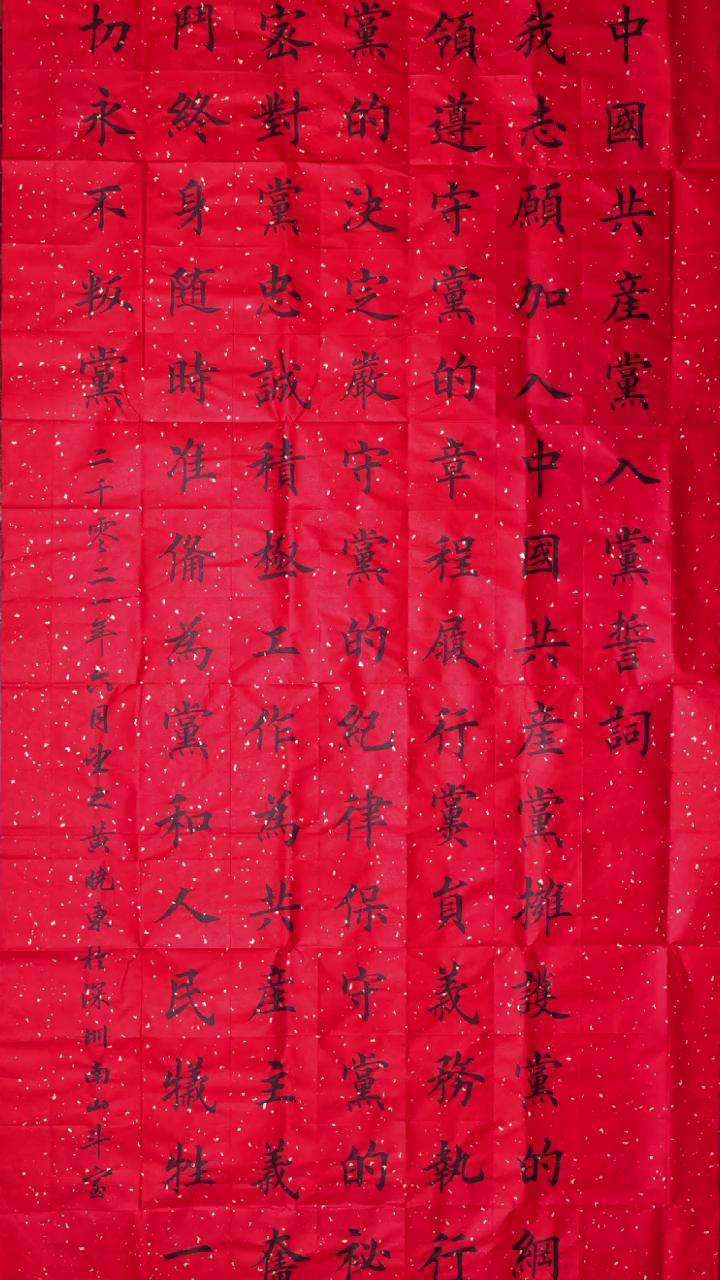 中國共産黨入黨誓詞
我志願加入中國共産黨擁護黨的綱
領遵守黨的章程履行黨員義務執行
黨的決定嚴守黨的紀律保守黨的祕
密對黨忠誠積極工作為共産主義奮
鬥終身随時准備為黨和人民犧牲一
切永不叛黨
二千零二一年六月書之黄晓東於深圳南山斗室